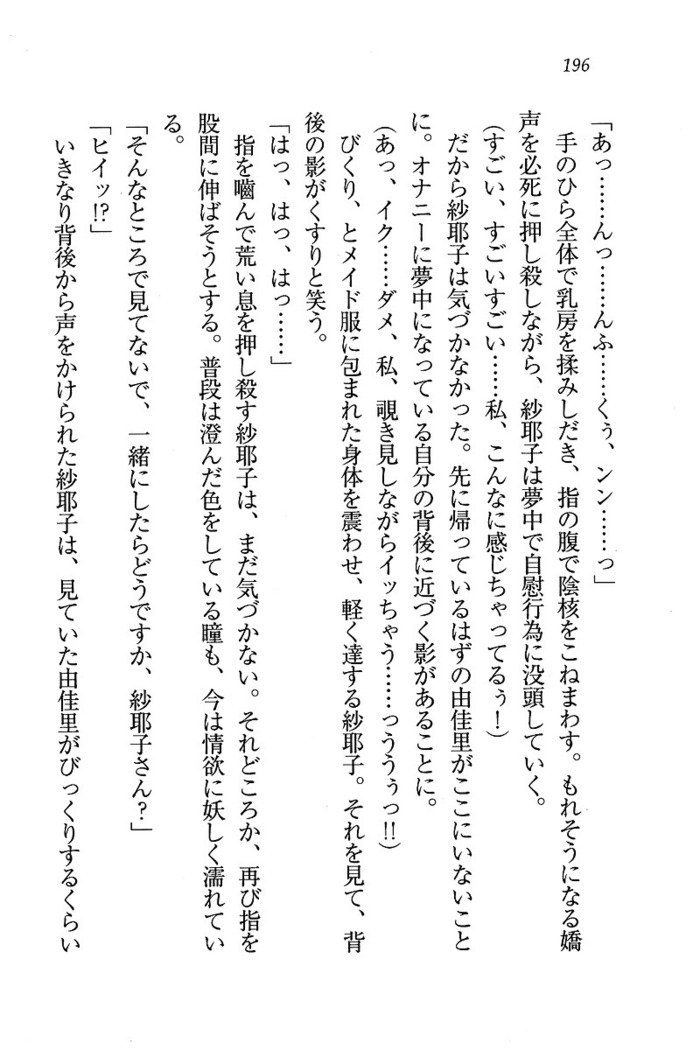 196
「あっ……んっ……んふ……くぅ、ンン……っ」
　手のひら全体で乳房を揉みしだき、指の腹で陰核をこねまわす。もれそうになる嬌
声を必死に押し殺しながら、紗耶子は夢中で自慰行為に没頭していく。
(すごい、すごいすごい……私、こんなに感じちゃってるぅ！)
　だから紗耶子は気づかなかった。先に帰っているはずの由佳里がここにいないこと
に。オナニーに夢中になっている自分の背後に近づく影があることに。
(あっ、イク……ダメ、私、覗き見しながらイッちゃう……っううぅっ!!)
　びくり、とメイド服に包まれた身体を震わせ、軽く達する紗耶子。それを見て、背
後の影がくすりと笑う。
「はっ、はっ、はっ……」
　指を噛んで荒い息を押し殺す紗耶子は、まだ気づかない。それどころか、再び指を
股間に伸ばそうとする。普段は澄んだ色をしている瞳も、今は情欲に妖しく濡れてい
る。
「そんなところで見てないで、一緒にしたらどうですか、紗耶子さん？」
「ヒイッ!?」
　いきなり背後から声をかけられた紗耶子は、見ていた由佳里がびっくりするくらい